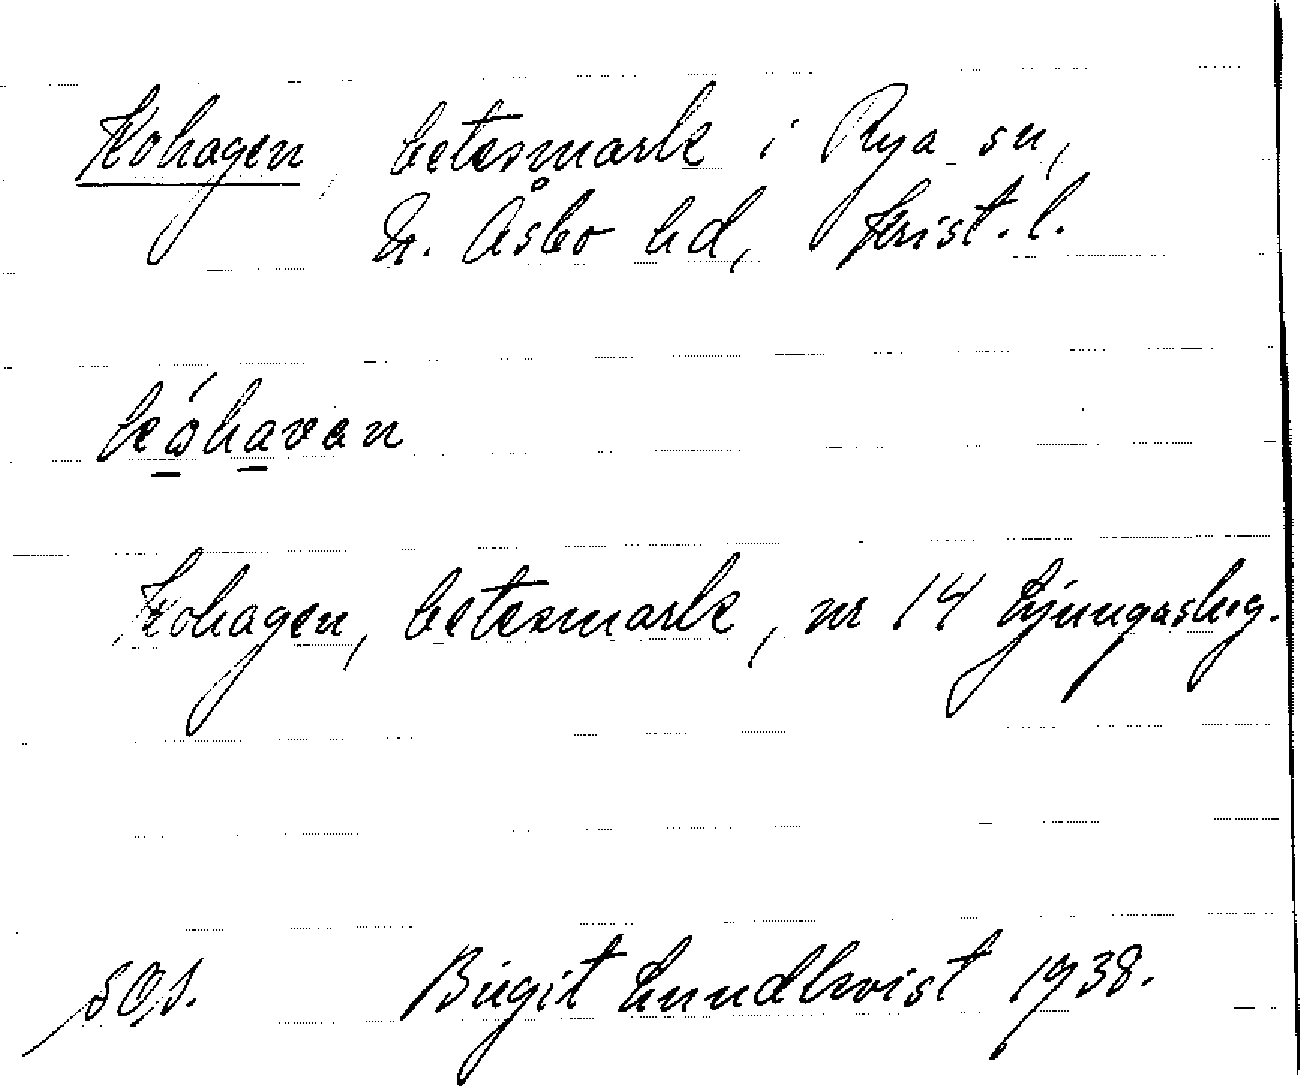 Kohagen, betesmark i Rya sn,
N. Åsbo hd, Krist. l.
kóhavan
Kohagen, betesmark, nr 14 Ljungaskog.
SOS. Birgit Lundkvist 1938.